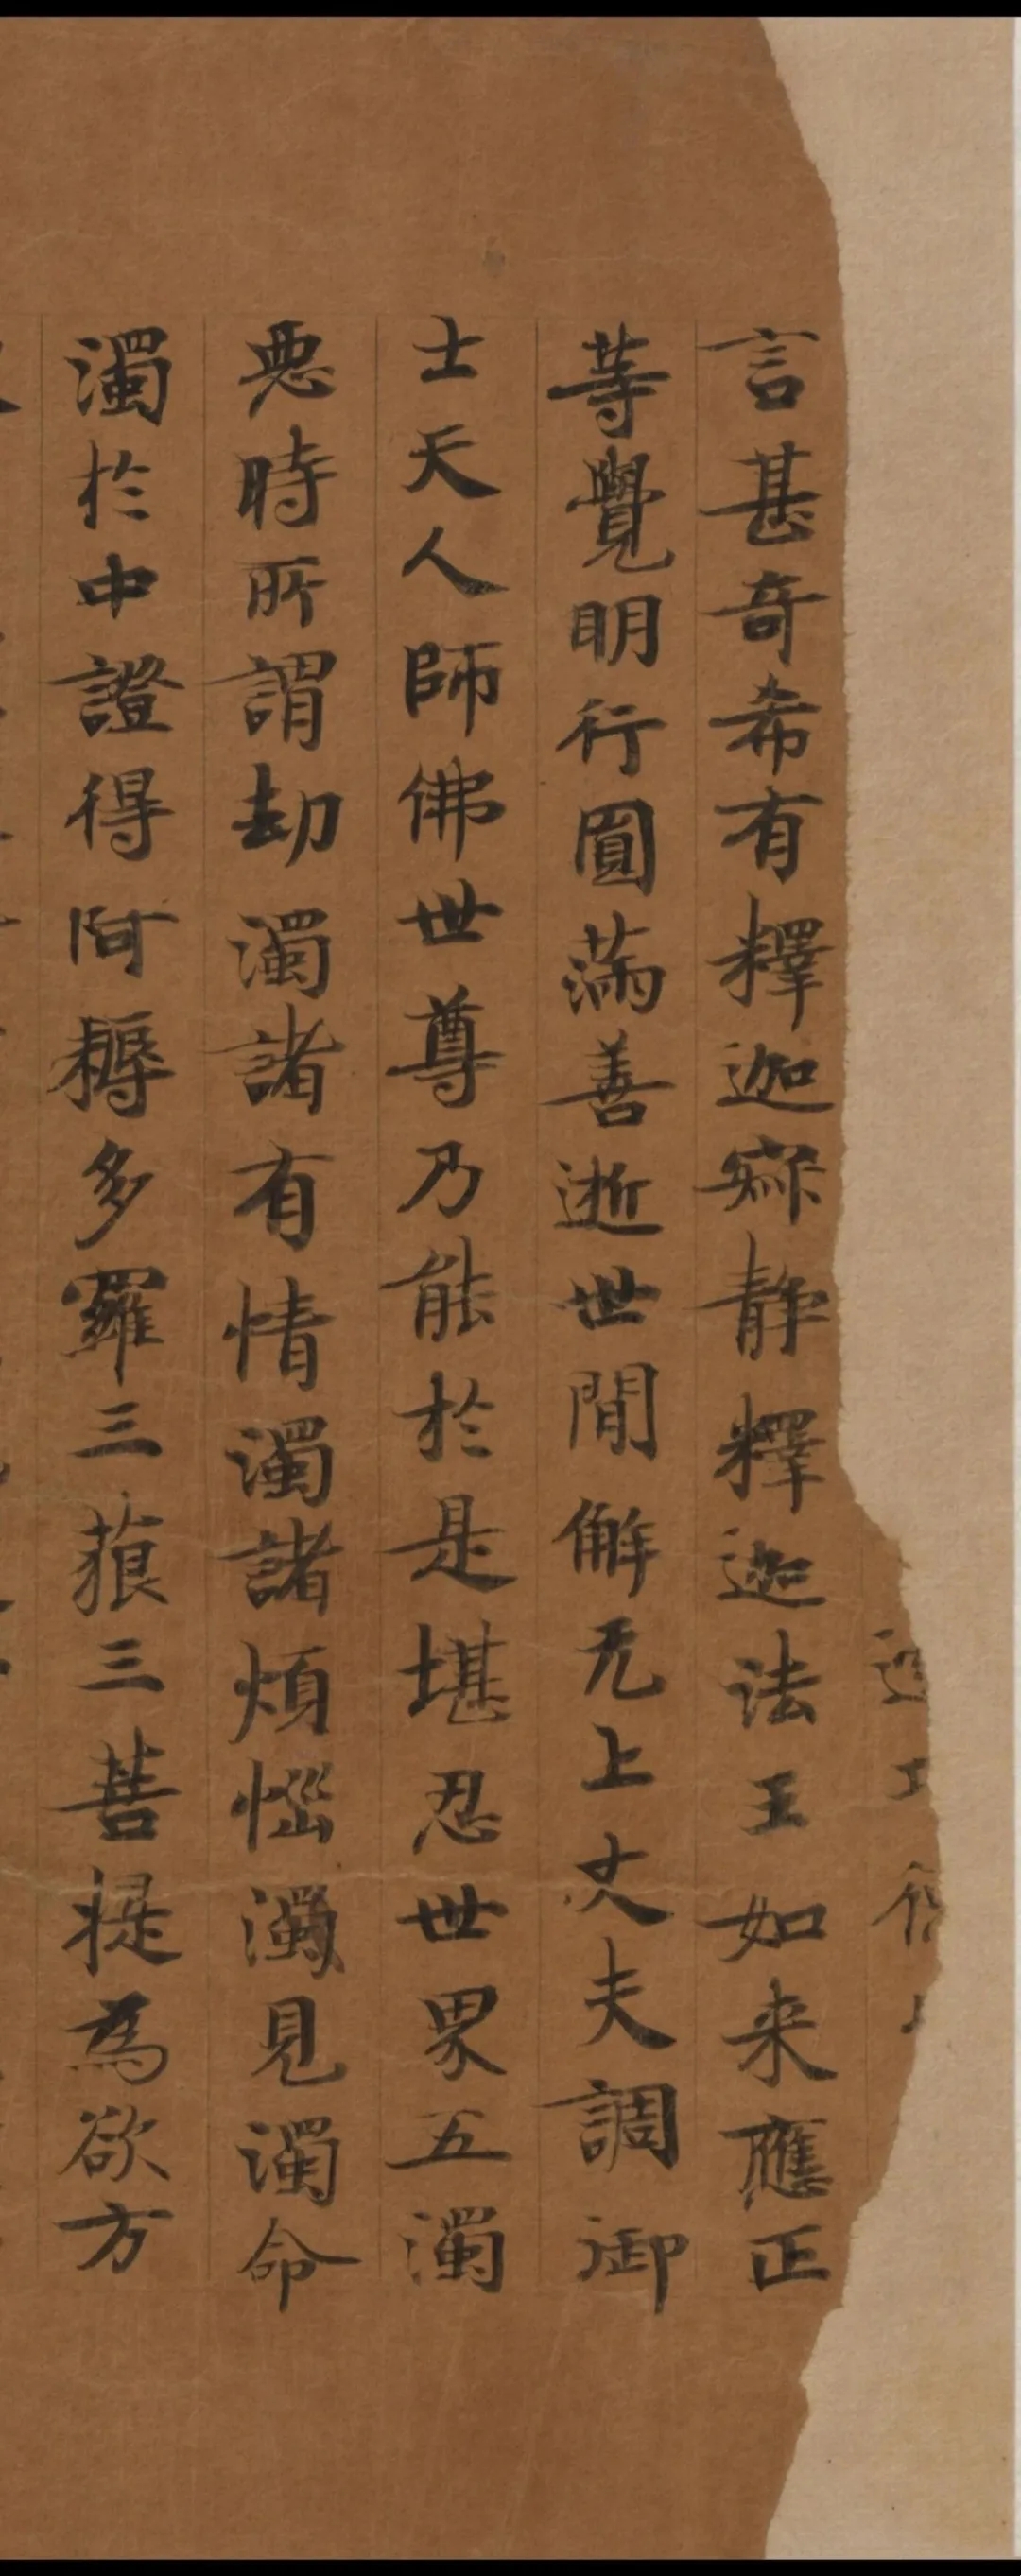 言甚奇希有釋迦寂静釋迦法王如来應正
等覺明行圓滿善逝世間解无上丈夫調御
士天人師佛世尊乃能於是堪忍世界五濁
惡時所謂劫濁諸有情濁諸煩惱濁見濁命
濁於中證得阿耨多羅三藐三菩提為欲方